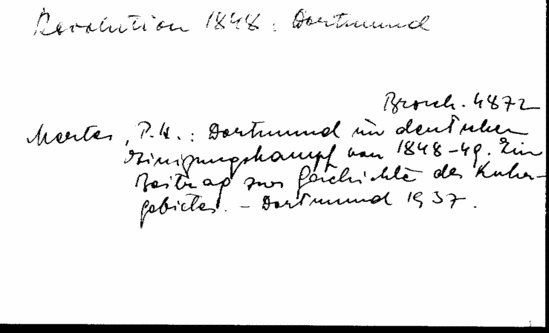 Revolution 1848: Dortmund
Brosch. 4872
Mertes, P.H.: Dortmund im deutschen
Einigungskampf von 1848-49. Ein
Beitrag zur Geschichte des Ruhr-
gebietes. - Dortmund 1937.